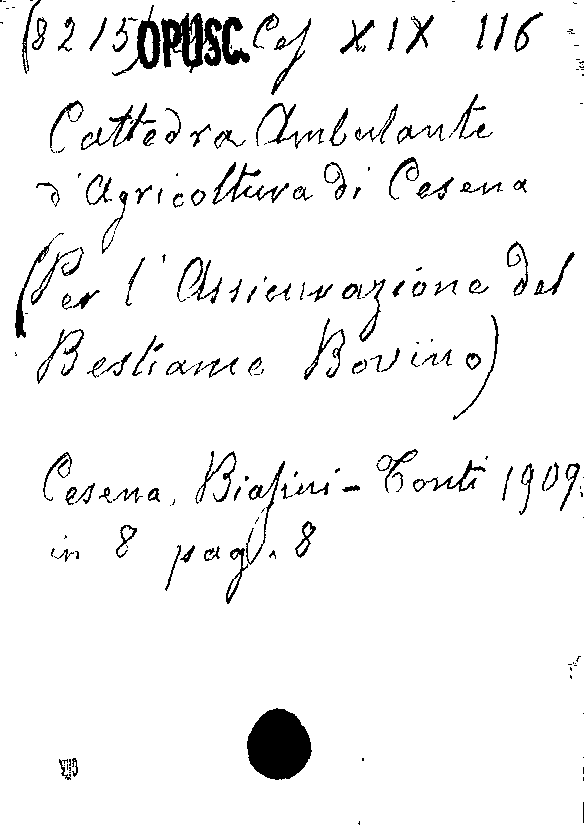 (8215) OPUSC. Ces XIX 116
Cattedra Ambulante
d'Agricoltura di Cesena
(Per l'Assicurazione del
Bestiame Bovino)
Cesena, Biasini - Tonti 1909.
in 8 pag. 8